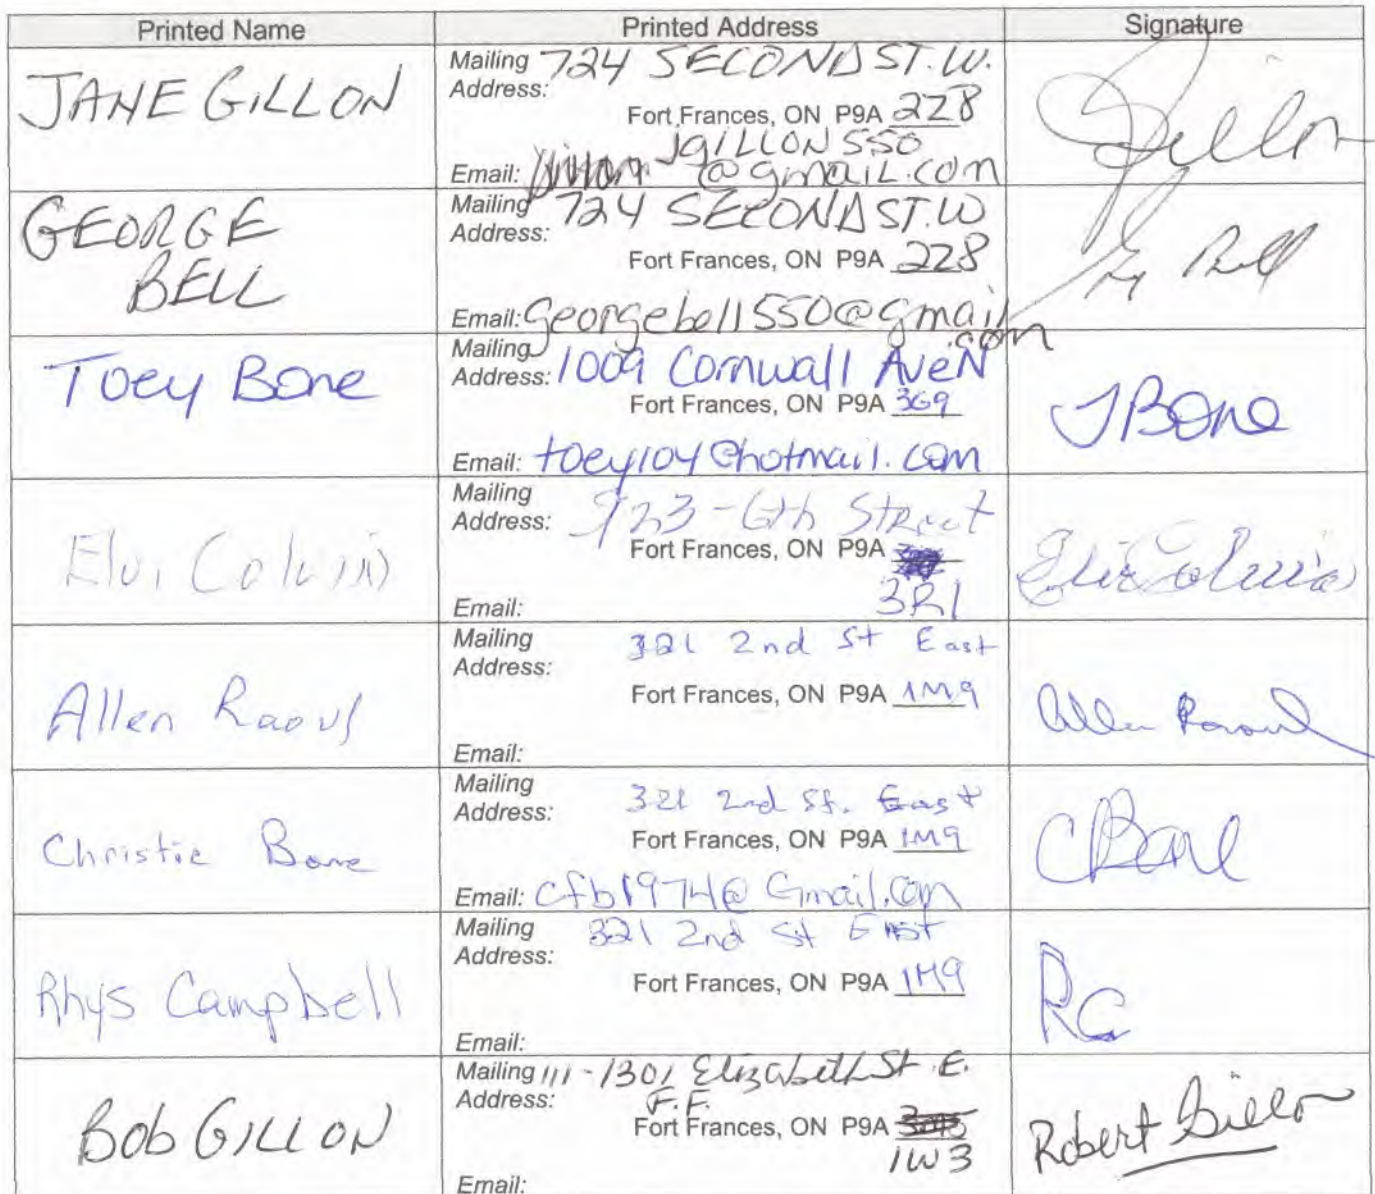 Printed Name Printed Address Signature
JANE GILLON
Mailing Address: 724 SECOND ST. W.
Fort Frances, ON P9A 2Z8
jgillon550
Email: @gmail.com
Gillon
GEORGE
BELL
Mailing Address: 724 SECOND ST. W
Fort Frances, ON P9A 2Z8
Email: georgebell550@gmail
.com
Bell
Toey Bone
Mailing
Address: 1009 Cornwall Ave N
Fort Frances, ON P9A 3G9
Email: toey104@hotmail.com
J Bone
Colvin
Mailing
Address: 923-6th Street
Fort Frances, ON P9A
3R1
Email:
Allen Raoul
Mailing 321 2nd St East
Address:
Fort Frances, ON P9A 1M9
Email:
Allen Raoul
Christie Bone
Mailing
Address: 321 2nd St. East
Fort Frances, ON P9A 1M9
Email: cfb1974@Gmail.com
C Bone
Rhys Campbell
Mailing 321 2nd St East
Address:
Fort Frances, ON P9A 1M9
Email:
RC
Bob GILLON
Mailing 111-1301 Elizabeth St. E.
Address: F.F.
Fort Frances, ON P9A
1W3
Email:
Robert Gillon